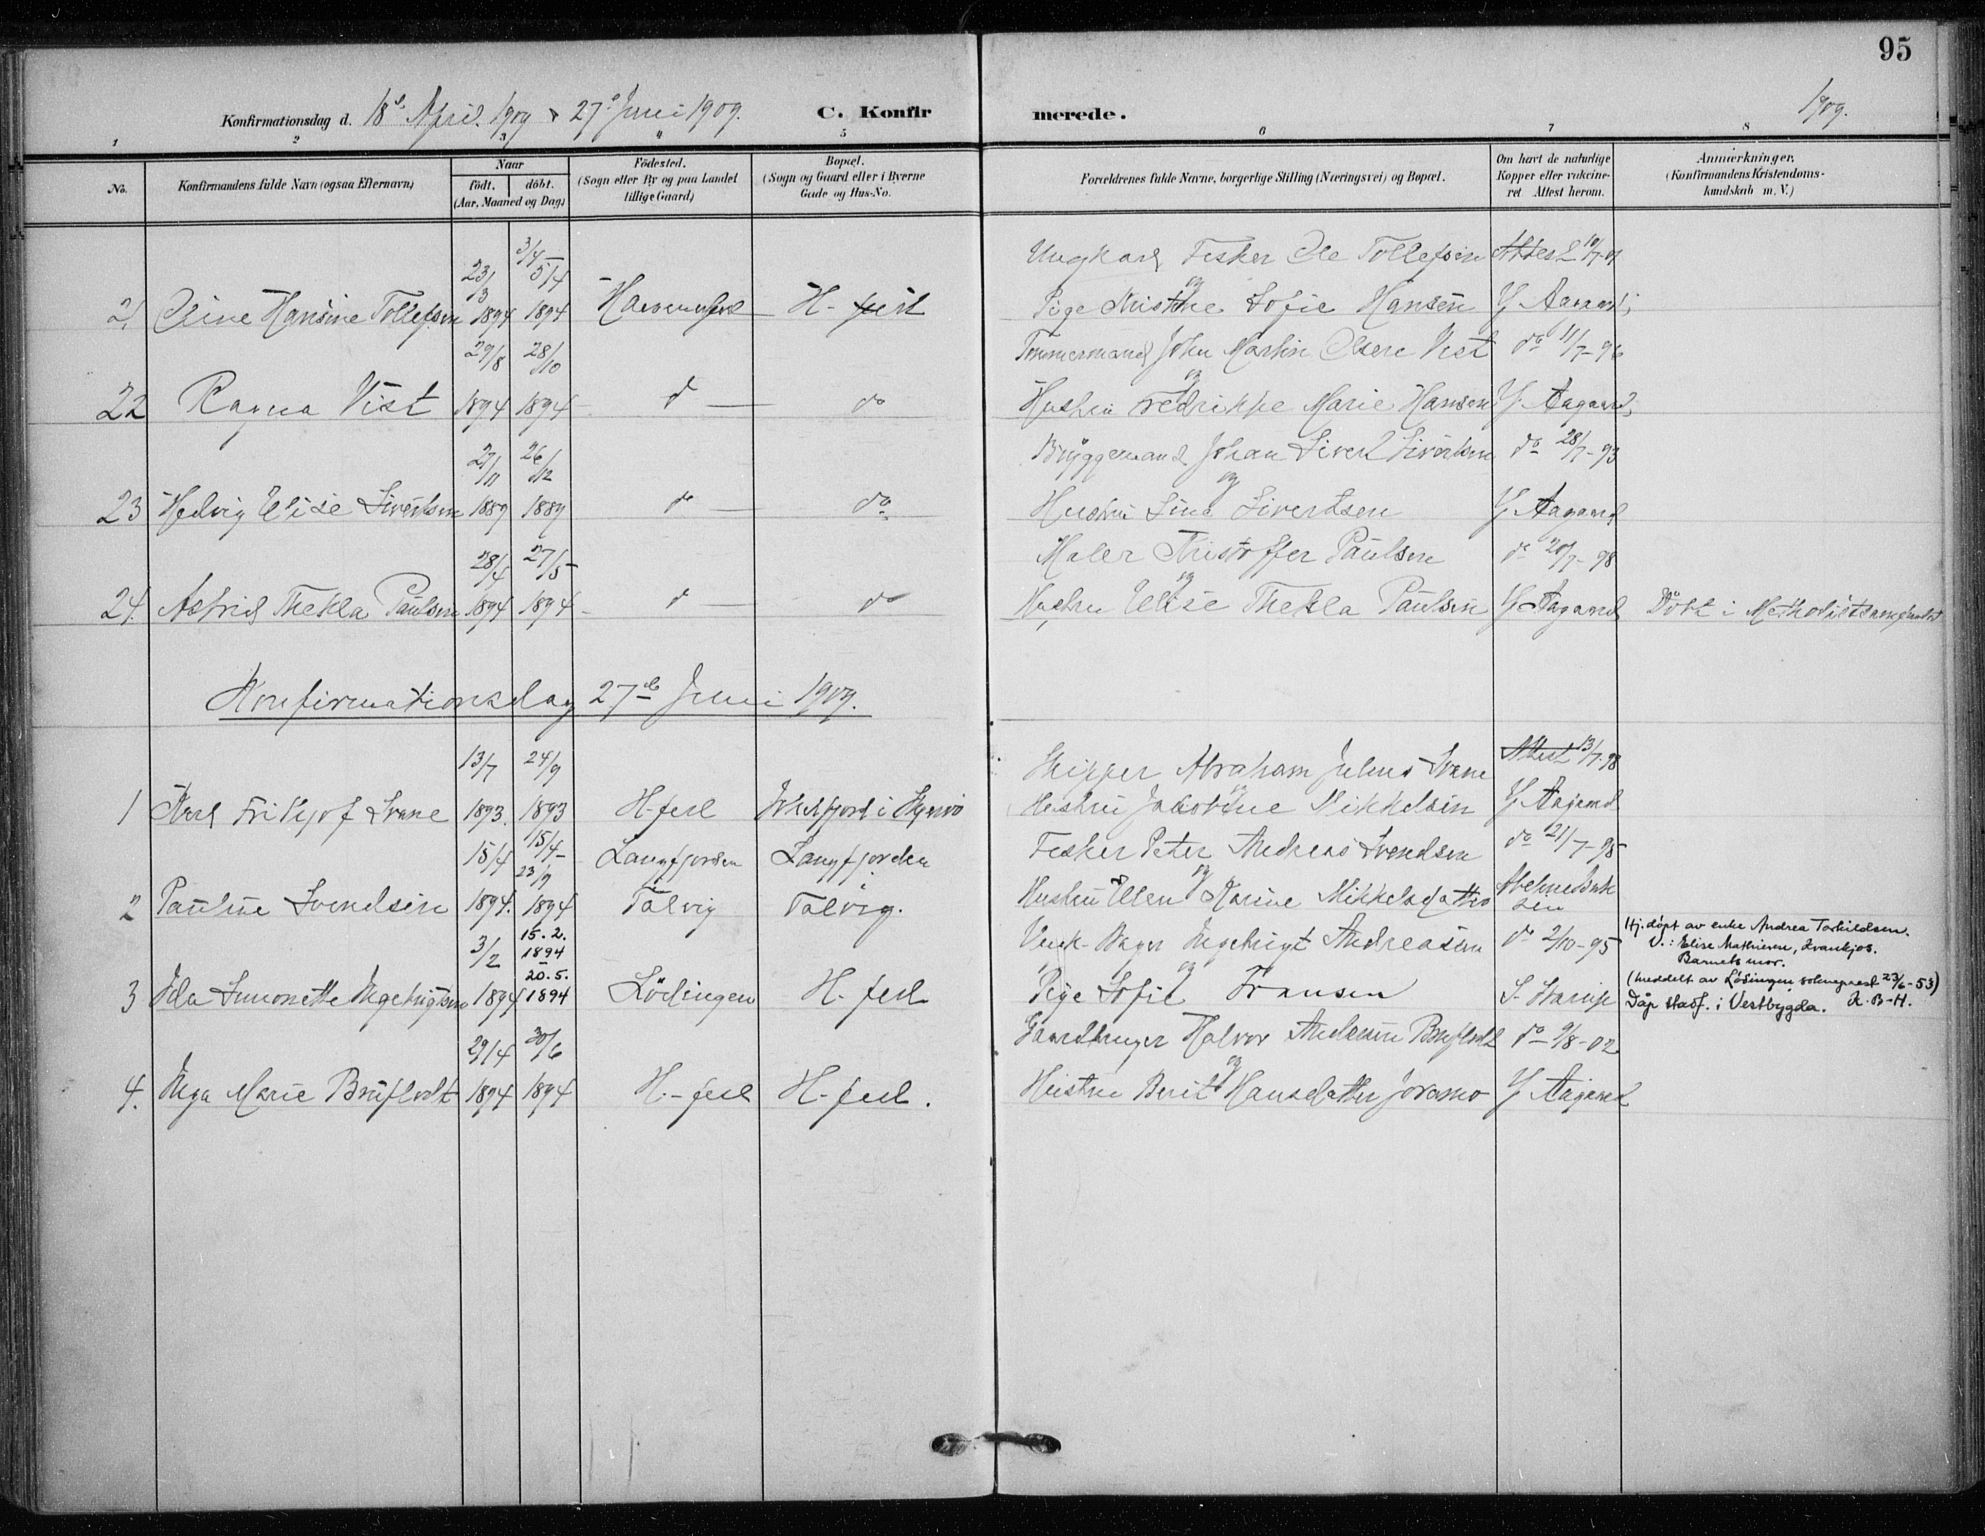 95
Konfirmationsdag d. 18de April 1909 & 27de Juni 1909. C. Konfirmerede. 1909.
1 2 3 4 5 6 7 8
No. Konfirmandens fulde Navn (ogsaa Efternavn) Naar födt. döbt. (Aar, Maaned og Dag) Födested. (Sogn eller By og paa Landet tillige Gaard) Bopæl. (Sogn og Gaard eller i Byerne Gade og Hus-No. Forældrenes fulde Navne, borgerlige Stilling (Næringsvei) og Bopæl. Om havt de naturlige Kopper eller vakcineret. Attest herom. Anmærkninger. (Konfirmandens Kristendomskundskab m. V.)
3/4 - 5/4 Ungkarl Fisker Ole Tollefsen Attest 10/7-01
23/3 og
21. Oline Hansine Tollefsen 1894 1894 Hammerfest H-fest Pige Kristine Sofie Hansen Y Aagaard
29/8 28/10 Tømmermand John Martin Olsen Vist do 11/7-96
og
22 Ragna Vist 1894 1894 do do Hustru Fredrikke Marie Hansen Y Aagaard
27/11 26/12 Bryggemand Johan Sivert Sivertsen do 28/7-93
og
23 Hedvig Elise Sivertsen 1889 1889 do do Hustru Lina Sivertsen Y Aagaard
28/4 27/5 Maler Kristoffer Paulsen do 20/7-98
og
24. Astrid Thekla Paulsen 1894 1894 do do Hustru Elise Thekla Paulsen Y Aagaard Döbt i Methodistsamfundet
Konfirmationsdag 27de Juni 1909.
13/7 24/9 Skipper Abraham Julius Svane Attest 13/7-98
og
1 Karl Fritjof Svane 1893. 1893 H-fest Jökelfjord i Skjervö Hustru Jakobine Mikkelsen Y Aagaard
15/4 15/4 - 23/9 Langfjorden Langfjorden Fisker Peter Andreas Svendsen do 21/7-95
og
2 Pauline Svendsen 1894. 1894 Talvig Talvig. Hustru Ellen Karine Mikkelsdatter
3/2 15.2. 1894 - 20.5. Andreasen do 2/10-95 Hj. döpt av enke Andrea Torkildsen.
V.: Elise Mathisen,
Barnets mor.
og
3 Ida Simonette Ingebrigtsen 1894 1894 Lödingen H-fest Pige Sofie Fransen (meddelt av Lödingen sokneprest 23/6-53)
Dåp stadf. i Vestbygda. R.B-H.
29/4 30/6 Gaardbruger Halvor Andersen Brufladt do 9/8-02
og
4. Inga Marie Brufladt 1894 1894 H.-fest H-fest. Hustru Berit Hansdatter Joramo Y Aagaard